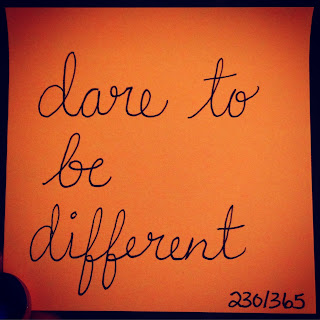 dare to
be
different
230/365